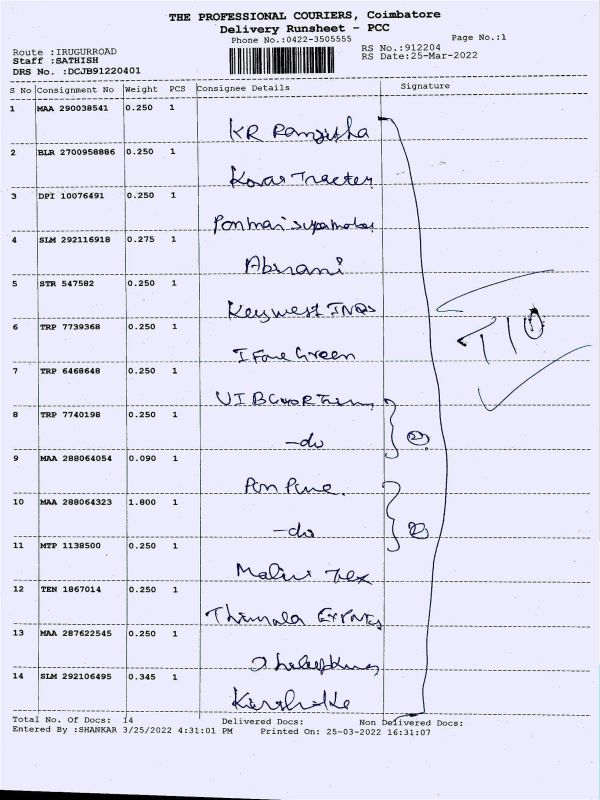 THE PROFESSIONAL COURIERS, Coimbatore
Delivery Runsheet - PCC
Phone No.:0422-3505555
Page No.:1
Route :IRUGURROAD
RS No.:912204
Staff :SATHISH
RS Date:25-Mar-2022
DRS No. :DCJB91220401
S No Consignment No Weight PCS Consignee Details Signature
1 MAA 290038541 0.250 1
KR Ranjitha
2 BLR 2700958886 0.250 1
3 DPI 10076491 0.250 1
4 SLM 292116918 0.275 1
Abirami
5 STR 547582 0.250 1
Keywest
6 TRP 7739368 0.250 1
Green
7 TRP 6468648 0.250 1
8 TRP 7740198 0.250 1
-do
9 MAA 288064054 0.090 1
Pon Pure.
10 MAA 288064323 1.800 1
-do
11 MTP 1138500 0.250 1
Malini Tex
12 TEN 1867014 0.250 1
13 MAA 287622545 0.250 1
14 SLM 292106495 0.345 1
Total No. Of Docs: 14 Delivered Docs: Non Delivered Docs:
Entered By :SHANKAR 3/25/2022 4:31:01 PM Printed On: 25-03-2022 16:31:07